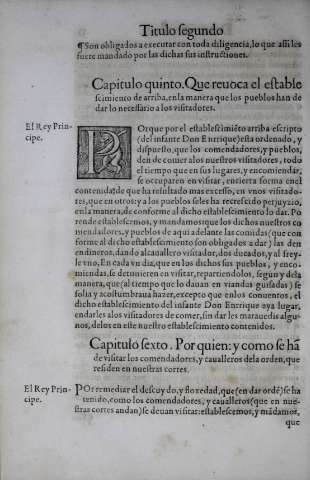 Titulo segundo
¶Son obligados a executar con toda diligencia, lo que assi les
fuere mandado por las dichas sus instructiones.
Capitulo quinto. Que reuoca el estable
scimiento de arriba, en la manera que los pueblos han de
dar lo necessario a los visitadores.
El Rey Prin-
cipe.
POrque por el establescimiẽto arriba escripto
(del infante Don Enrrique) esta ordenado, y
dispuesto, que los comendadores, y pueblos,
den de comer a los nuestros visitadores, todo
el tiempo que en sus lugares, y encomiendas,
se occuparen en visitar, en cierta forma en el
contenida; de que ha resultado mas excesso, en vnos visitado-
res, que en otros: y a los pueblos se les ha recrescido perjuyzio,
en la manera, de conforme al dicho establescimiento lo dar. Po
rende establescemos, y mandamos que los dichos nuestros co
mendadores, y pueblos de aqui adelante las comidas (que con
forme al dicho establescimiento son obligados a dar) las den
en dineros, dando al cauallero visitador, dos ducados, y al frey-
le vno. En cada vn dia, que en los dichos sus pueblos, y enco-
miendas, se detuuieren en visitar, repartiendolos, segun y de la
manera, que (al tiempo que lo dauan en viandas guisadas) se
solia y acostumbraua hazer, excepto que en los conuentos, el
dicho establescimiento del infante Don Enrrique aya lugar,
en darles a los visitadores de comer, sin dar les marauedis algu-
nos, de los en este nuestro establescimiento contenidos.
Capitulo sexto. Por quien: y como se hã
de visitar los comendadores, y caualleros de la orden, que
residen en nuestras cortes.
El Rey Prin-
cipe.
POr remediar el descuydo, y floxedad, que (en dar ordẽ) se ha
tenido, como los comendadores, y caualleros (que en nue-
stras cortes andan) se deuan visitar: establescemos, y mãdamos,
que